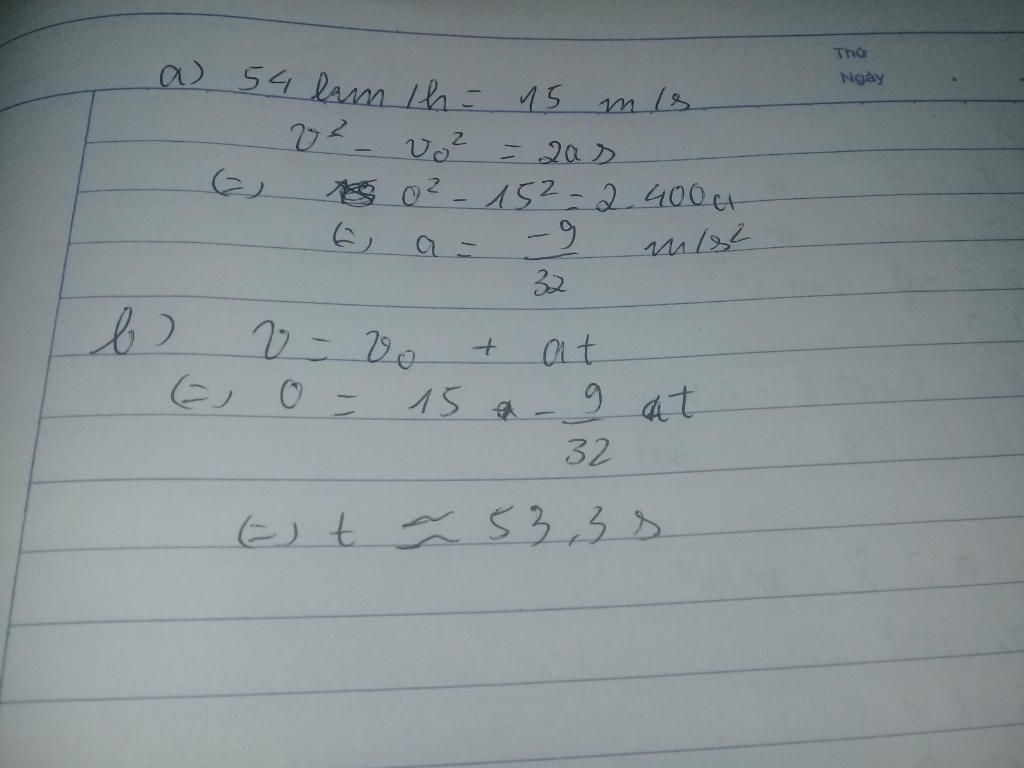 Thứ
Ngày
a) 54 km/h = 15 m/s
v² - v₀² = 2as
(=) 0² - 15² = 2.400a
(=) a = -9/32 m/s²
b) v = v₀ + at
(=) 0 = 15 - 9/32 t
(=) t ≈ 53,3 s